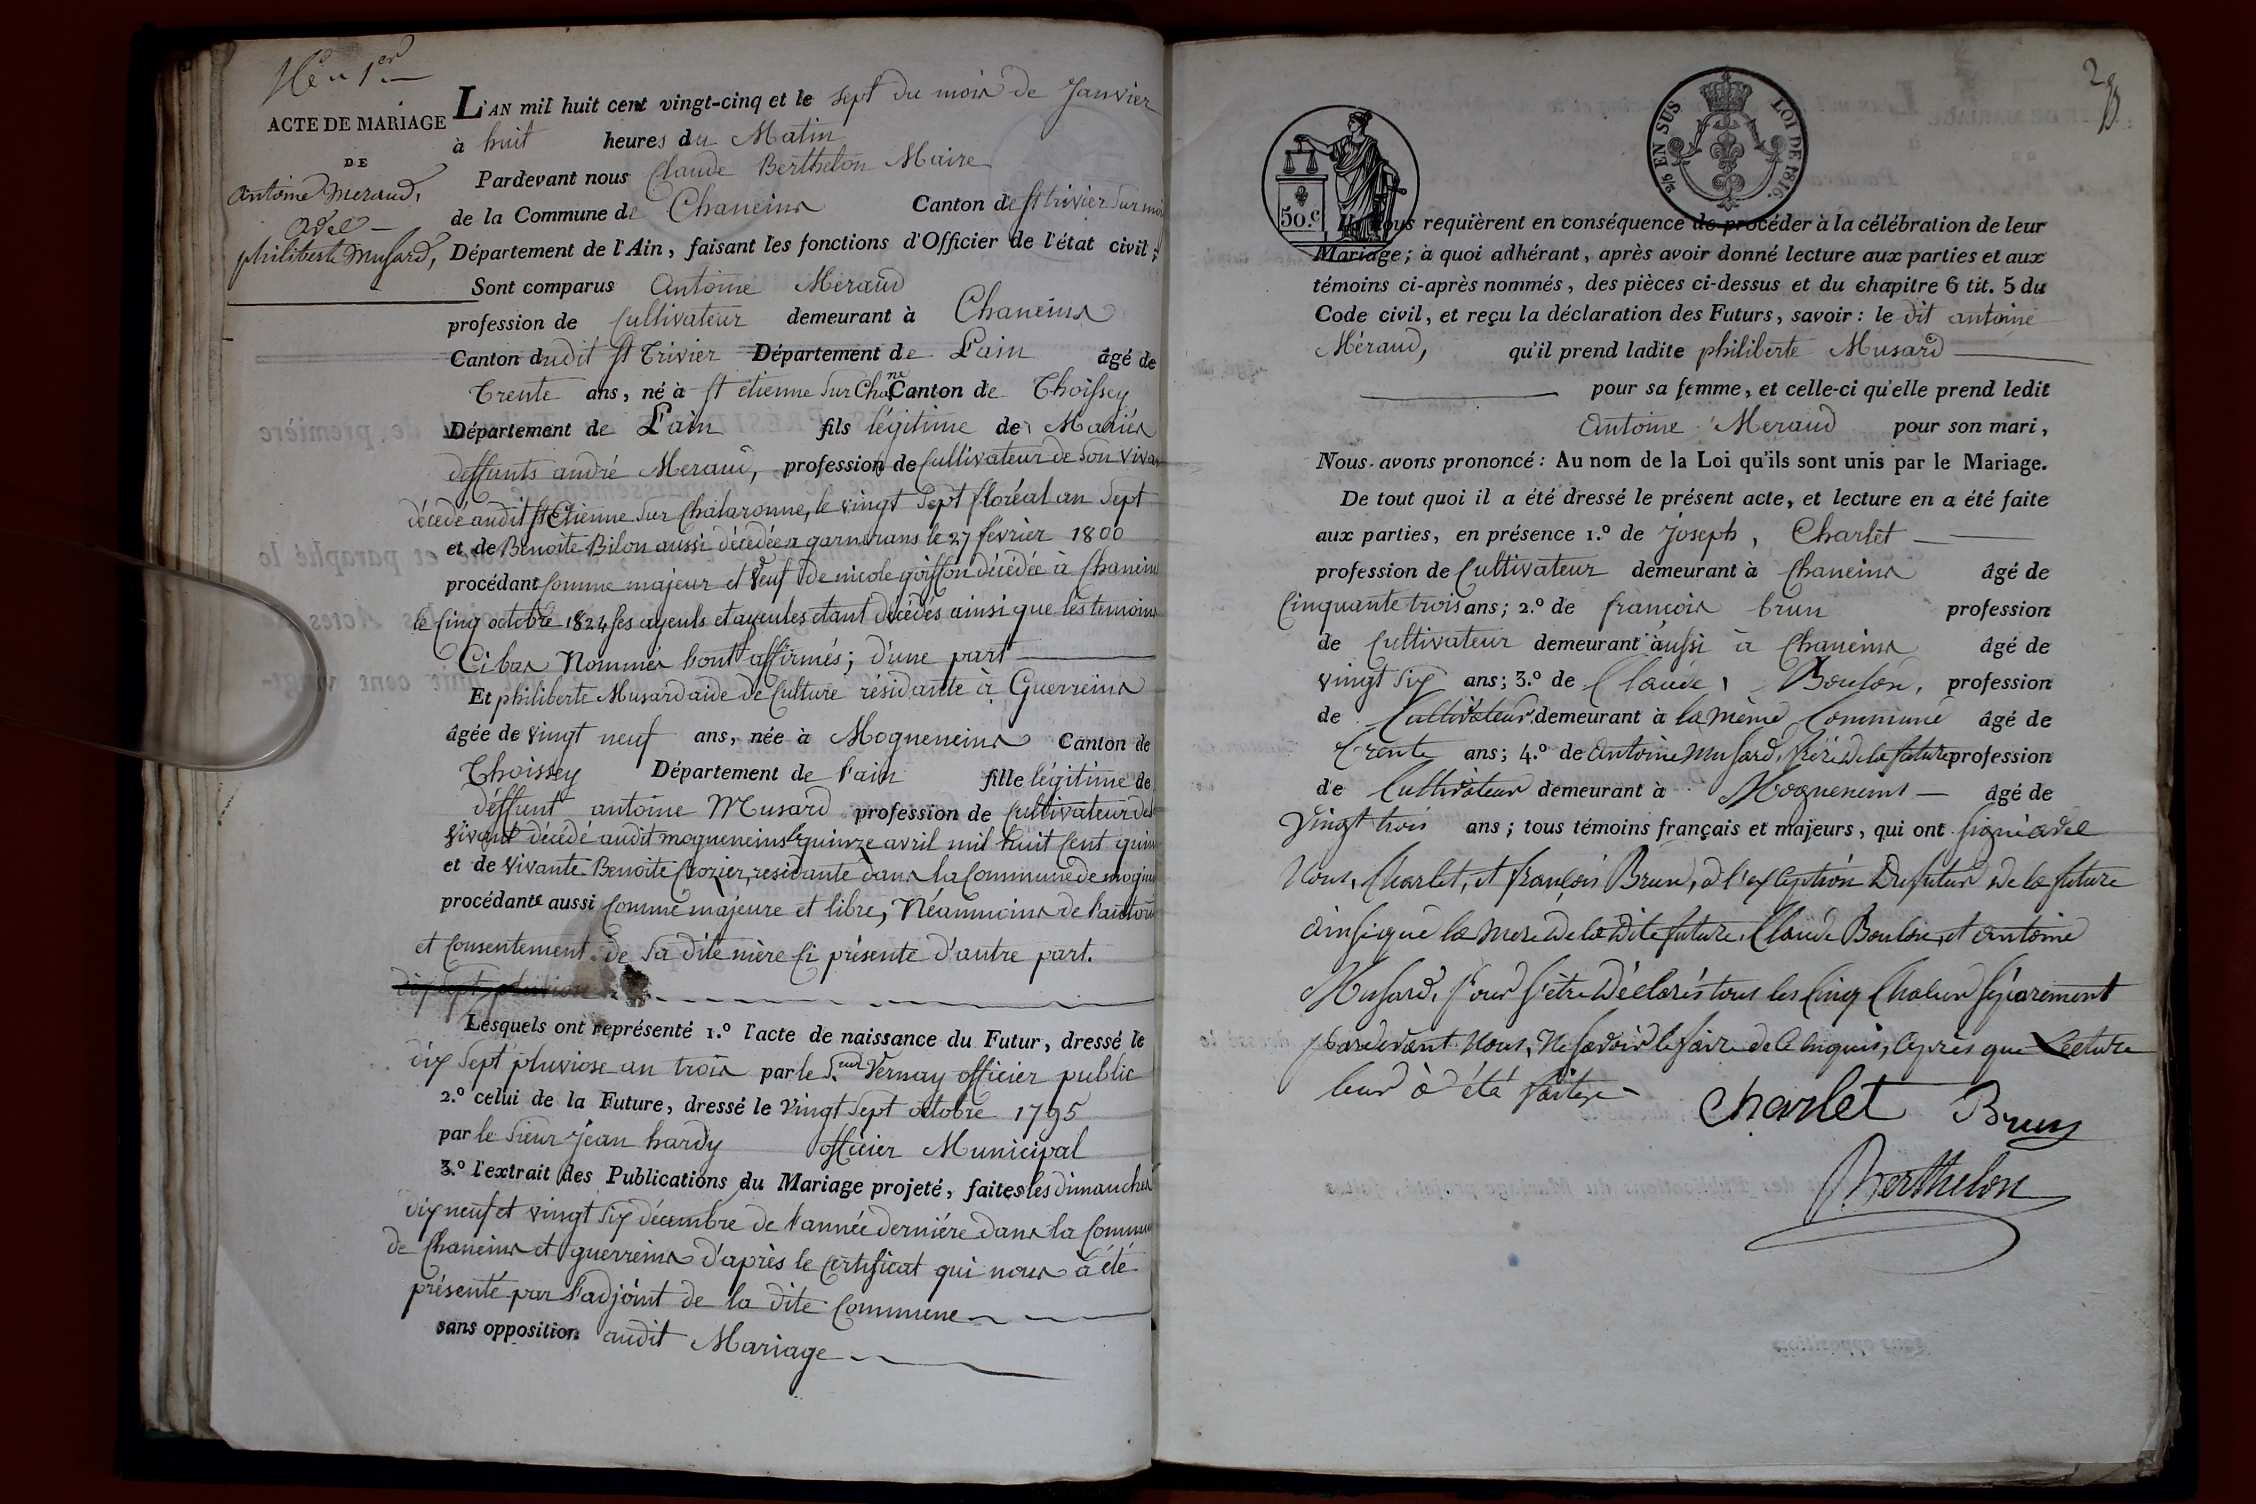 No 1er
ACTE DE MARIAGE
DE
antoine Meraud,
avec
philiberte Musard,
L'AN mil huit cent vingt-cinq et le sept du mois de Janvier
à huit heures du Matin
Pardevant nous Claude Berthelon Maire
de la Commune de Chaneins Canton de St trivier sur
Département de l'Ain, faisant les fonctions d'Officier de l'état civil;
Sont comparus Antoine Meraud
profession de Cultivateur demeurant à Chaneins
Canton dudit St Trivier Département de L'ain âgé de
Trente ans, né à St etienne sur Chane Canton de Thoissey
Département de L'ain fils légitime de Mariés
deffunts andré Meraud, profession de Cultivateur de son viva
décédé audit St Etienne sur Chalaronne, le vingt sept floréal an sept
et de Benoite Bilon aussi décédée a garnerans le 27 février 1800
procédant comme majeur et veuf de nicole goiffon décédée à Chaneins
le cinq octobre 1824 ses ayeuls et ayeules étant décédés ainsi que les temoins
Ci bas Nommés l'ont affirmés; d'une part
Et philiberte Musard aide de Culture résidante à Guerreins
âgée de vingt neuf ans, née à Mogneneins Canton de
Thoissey Département de l'ain fille légitime de
deffunt antoine Musard profession de Cultivateur de
vivant décédé audit mogneneins le quinze avril mil huit cent quin
et de vivante Benoite Crozier, residante dans la Commune de mogne
procédante aussi comme majeure et libre, Néanmoins de l'autori
et consentement de sa dite mère ci présente d'autre part.
dix sept pluviose
Lesquels ont représenté 1.º l'acte de naissance du Futur, dressé le
dix sept pluviose an trois par le Sieur Vernay officier public
2.º celui de la Future, dressé le vingt sept octobre 1795
par le sieur jean hardy officier Municipal
3.º l'extrait des Publications du Mariage projeté, faites les dimanches
dix neuf et vingt six décembre de l'année derniére dans la Commune
de Chaneins et guerreins d'après le certificat qui nous a été
présenté par l'adjoint de la dite Commune
sans opposition audit Mariage
2
50.c
5/2 EN SUS LOI DE 1816.
Ils nous requièrent en conséquence de procéder à la célébration de leur
Mariage; à quoi adhérant, après avoir donné lecture aux parties et aux
témoins ci-après nommés, des pièces ci-dessus et du chapitre 6 tit. 5 du
Code civil, et reçu la déclaration des Futurs, savoir: le dit antoine
Méraud, qu'il prend ladite philiberte Musard
pour sa femme, et celle-ci qu'elle prend ledit
Antoine Meraud pour son mari,
Nous avons prononcé: Au nom de la Loi qu'ils sont unis par le Mariage.
De tout quoi il a été dressé le présent acte, et lecture en a été faite
aux parties, en présence 1.º de Joseph, Charlet
profession de Cultivateur demeurant à Chaneins âgé de
Cinquante trois ans; 2.º de françois brun profession
de Cultivateur demeurant aussi à Chaneins âgé de
vingt six ans; 3.º de Claude, Boulon, profession
de Cultivateur demeurant à la même Commune âgé de
Trente ans; 4.º de Antoine Musard, frère de la future profession
de Cultivateur demeurant à Mogneneins âgé de
Vingt trois ans; tous témoins français et majeurs, qui ont signé avec
Nous, Charlet, et françois Brun, à l'exception du futur de la future
ainsi que la mere de la dite future, Claude Boulon, et antoine
Musard, pour s'être déclarés tous les cinq chacun séparement
pardevant Nous, Ne savoir le faire de ce enquis, après que Lecture
leur à été faite
Charlet Brun
Berthelon